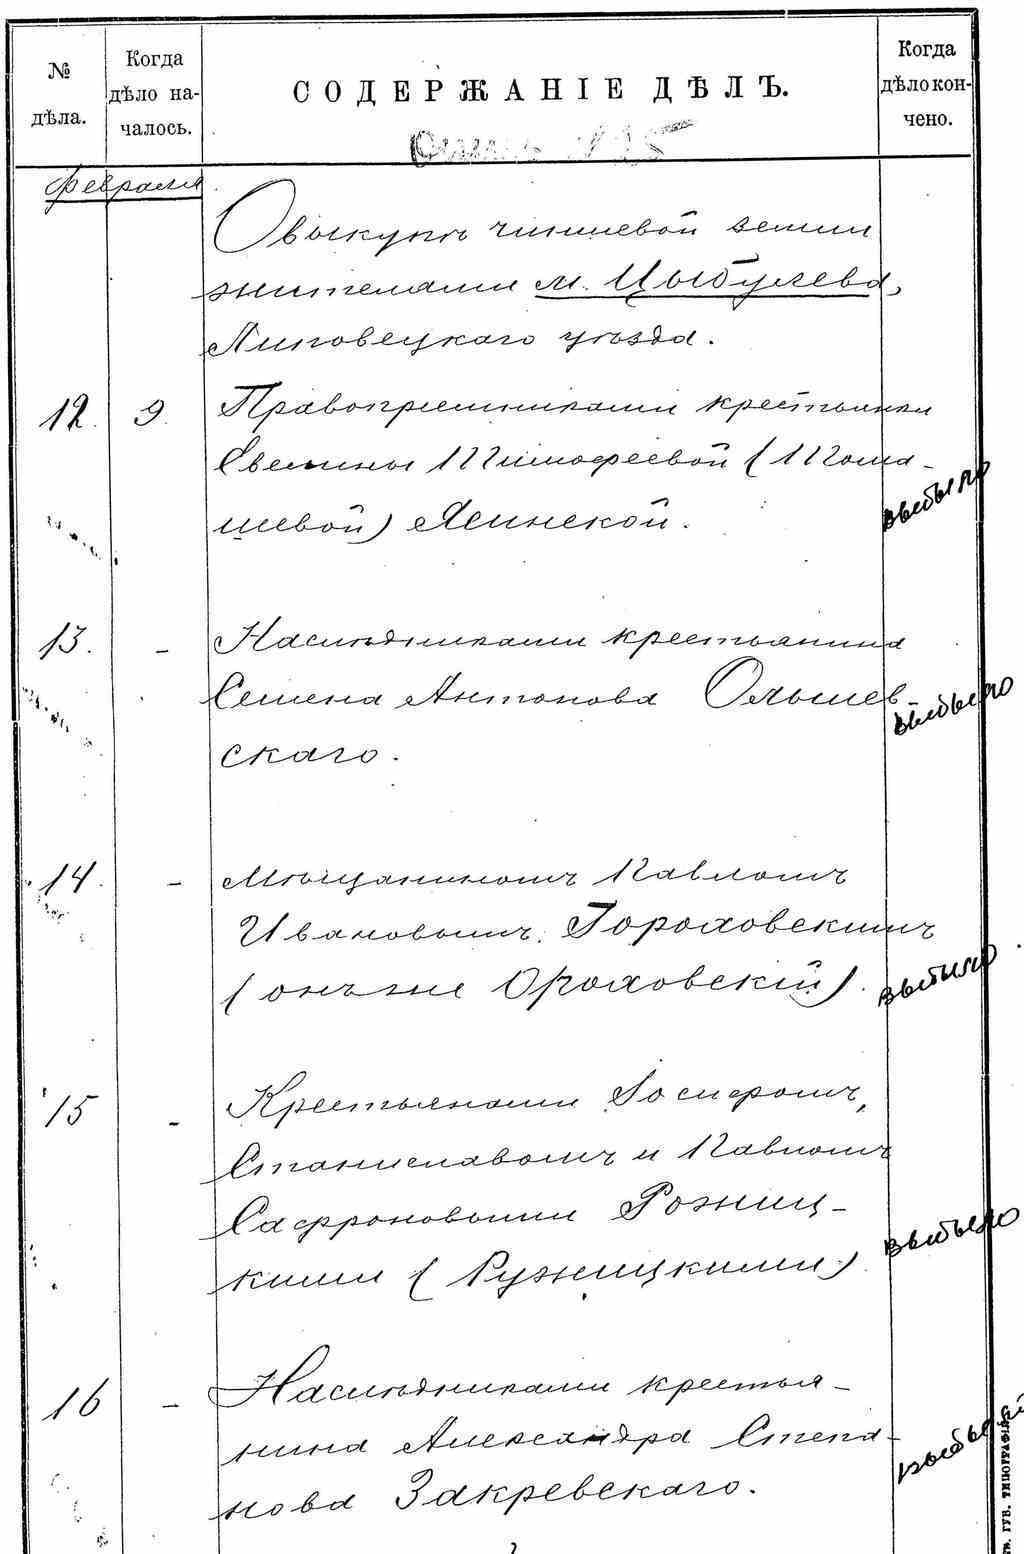 № дѣла.
Когда дѣло началось.
СОДЕРЖАНІЕ ДѢЛЪ.
Когда дѣло кончено.
Февраля
О выкупѣ чиншевой земли
жителями м. Цыбулева,
Липовецкаго уѣзда.
12. 9. Правопреемниками крестьянки
Евелины Тимофеевой (Тома-
шевой) Ясинской. выбыло
13. - Наслѣдниками крестьянина
Семена Антонова Олышев
скаго. выбыло
14. - Мѣщаниномъ Павломъ
Ивановымъ Гороховскимъ
(онъ же Ороховскій). выбыло
15 - Крестьянами Іосифомъ,
Станиславомъ и Павломъ
Сафроновыми Рожниц-
кими (Ружицкими) выбыло
16 - Наслѣдниками крестья-
нина Александра Степа-
нова Закревскаго.
ГУБ. ТИПОГРАФІЯ